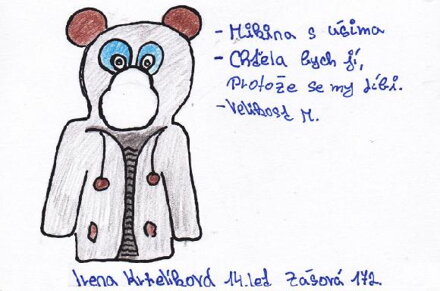 - Mikina s ušima
- Chtěla bych ji,
Protože se my líbí.
- Velikost M.
Irena Krhelíková 14.let Zášová 172